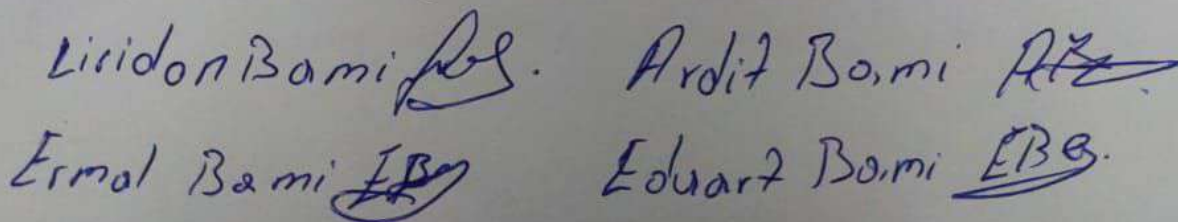 Liridon Bami Ardit Bami
Ermal Bami EB Eduart Bami EB